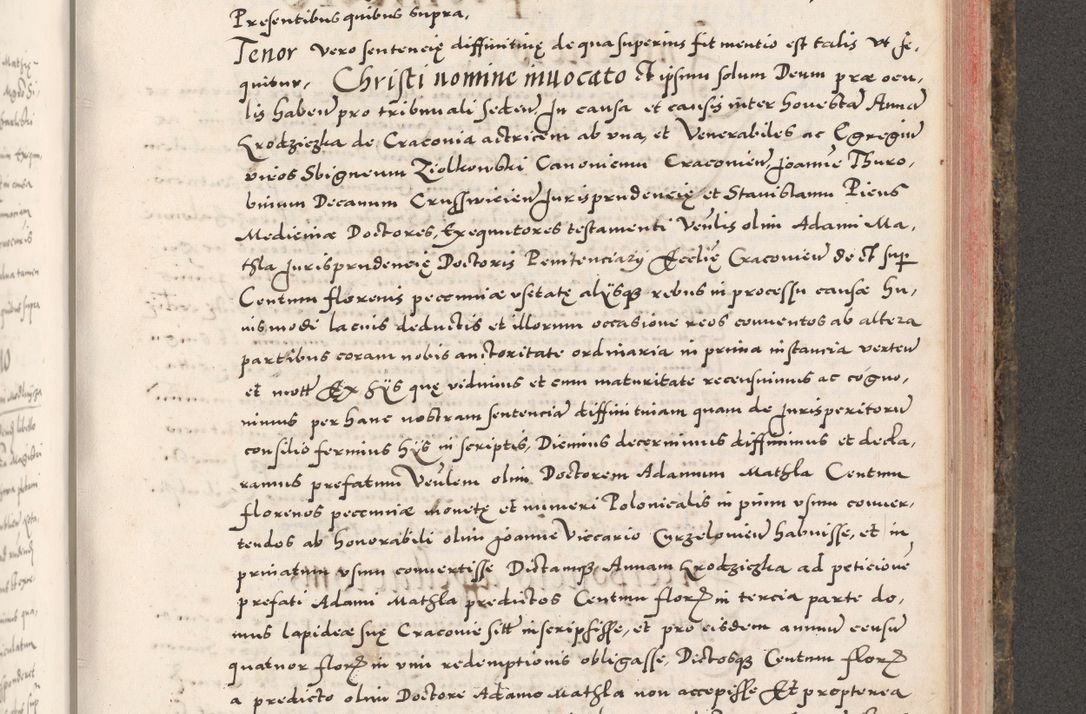 Presentibus quibus supra.
Tenor vero sentencię diffinitivę de qua superius fit mentio est talis vt se-
quitur. Christi nomine invocato Et ipsum solum Deum præ ocu-
lis haben̄ pro tribunali seden̄ In causa et causis inter honestā Annā
Krodziczka de Cracovia actricem ab una, et Venerabiles ac Egregiū
viros Sbigneum Ziolkowski Canonicum Cracovien̄ Joannē Thuro-
binum Decanum Crusswicien̄ Jurisprudencię et Stanislaum Picus
Medicinæ Doctores, Exequutores testamenti Ven̄lis olim Adami Ma-
thla Jurisprudencię Doctoris Penitenciarÿ Ecclīę Cracovien̄ de et sup
Centum florenis pecuniæ vsitatę alÿsque rebus in processu causæ hu-
iusmodi lacius deductis et illorum occasione reos conventos ab altera
partibus coram nobis auctoritate ordinaria in prima instancia verten̄
et mott̄ Ex hÿs quę vidimus et cum maturitate recensuimus ac cogno-
vimus per hanc nostram sentenciā diffinitivam quam de Jurisperitorū
consilio ferimus hÿs in scriptis, Dicimus decernimus diffinimus et decla-
ramus prefatum Ven̄lem olim Doctorem Adamum Mathla Centum
florenos pecuniæ monetę et numeri Polonicalis in pium vsum conver-
tendos ab honorabili olim Joanne Viccario Curzelovien̄ habuisse, et in
privatum vsum convertisse Dictamque Annam Krodziczka ad peticionē
prefati Adami Mathla predictos Centum flor in tercia parte do-
mus lapideæ suę Cracovie sitt̄ inscripsisse, et pro eisdem annuū censū
quatuor flor in vim redemptionis obligasse, Dictosque Centum flor
a predicto olim Doctore Adamo Mathla non accepisse Et propterea